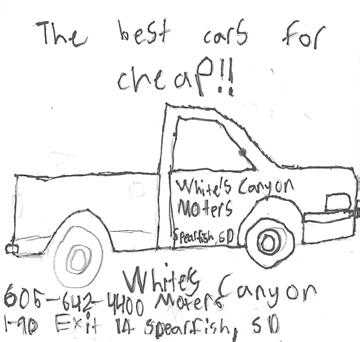 The best cars for
cheap!!
White's Canyon
Moters
Spearfish, SD
White's Canyon
605-642-4400 Moters
I-90 Exit 14 Spearfish, SD